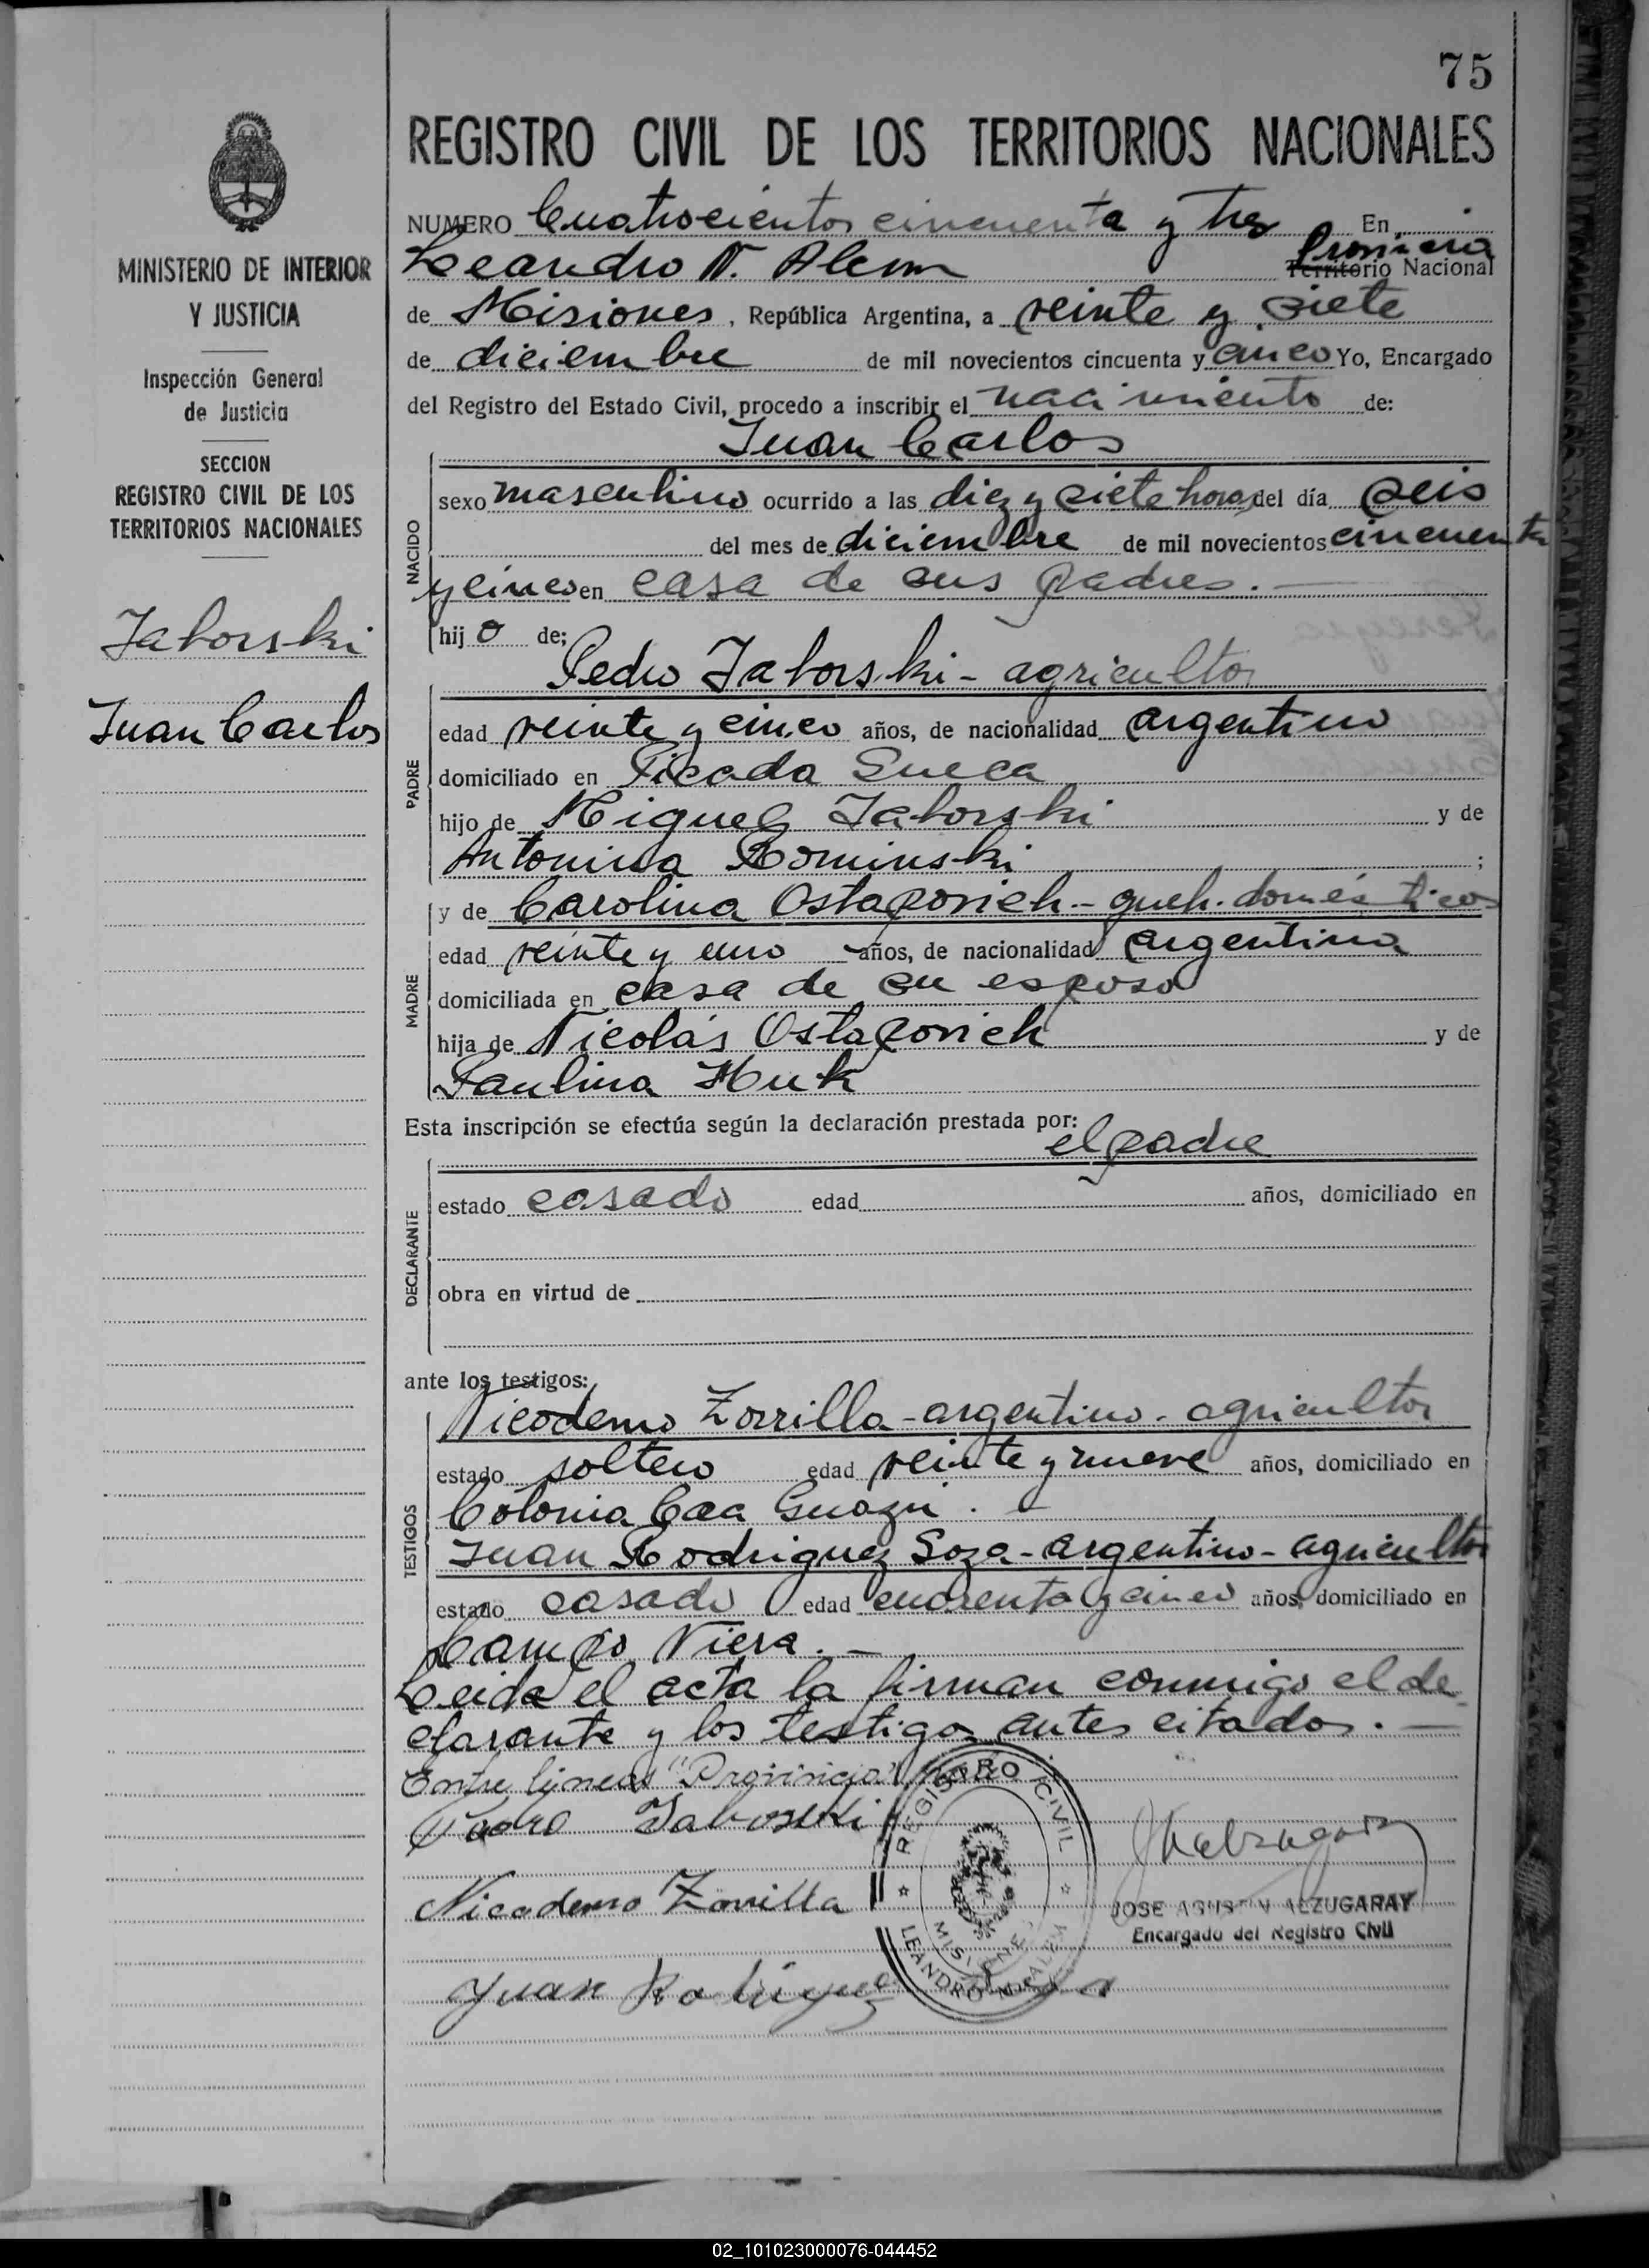 75
REGISTRO CIVIL DE LOS TERRITORIOS NACIONALES
MINISTERIO DE INTERIOR
Y JUSTICIA
Inspección General
de Justicia
SECCION
REGISTRO CIVIL DE LOS
TERRITORIOS NACIONALES
Taborski
Juan Carlos
NUMERO Cuatrocientos cincuenta y tres En
Leandro N. Alem Provincia Territorio Nacional
de Misiones, República Argentina, a veinte y siete
de diciembre de mil novecientos cincuenta y cinco Yo, Encargado
del Registro del Estado Civil, procedo a inscribir el nacimiento de:
Juan Carlos
NACIDO
sexo masculino ocurrido a las diez y siete horas del día seis
del mes de diciembre de mil novecientos cincuenta
y cinco en casa de sus padres.
hijo de:
Pedro Taborski - agricultor
PADRE
edad veinte y cinco años, de nacionalidad argentino
domiciliado en Picada Sueca
hijo de Miguel Taborski y de
Antonina Rominski ;
y de Carolina Ostapovich - queh. domésticos
MADRE
edad veinte y uno años, de nacionalidad argentina
domiciliada en casa de su esposo
hija de Nicolás Ostapovich y de
Paulina Huk
Esta inscripción se efectúa según la declaración prestada por:
el padre
DECLARANTE
estado casado edad años, domiciliado en
obra en virtud de
ante los testigos:
Nicodemo Zorrilla - argentino - agricultor
TESTIGOS
estado soltero edad veinte y nueve años, domiciliado en
Colonia Caa Guazú.
Juan Rodriguez Soza - argentino - agricultor
estado casado edad cuarenta y cinco años, domiciliado en
Campo Viera.
Leida el acta la firman conmigo el de-
clarante y los testigos antes citados.
Entre líneas "Provincia"
Pedro Taboski
Nicodemo Zorrilla
Juan Rodriguez
REGISTRO CIVIL
MISIONES
LEANDRO N. ALEM
JOSE AGUSTIN ALZUGARAY
Encargado del Registro Civil
02_101023000076-044452